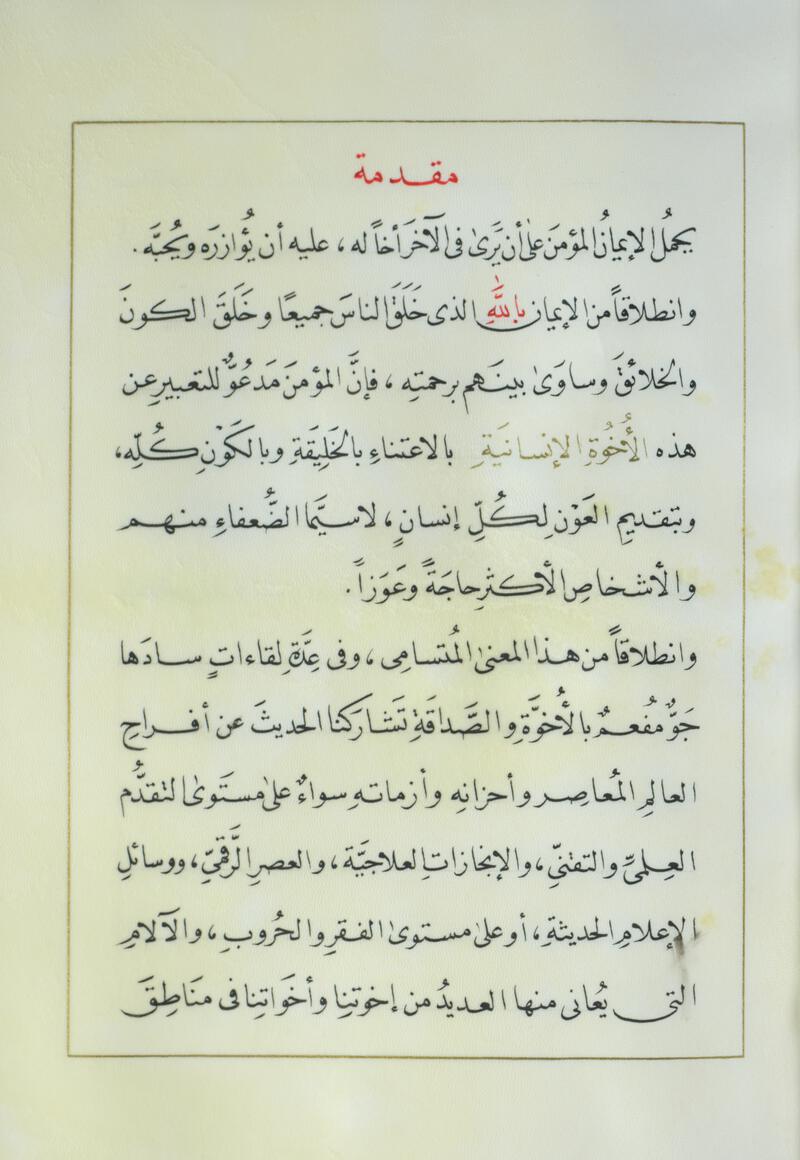 مقدمة
يحملُ الإيمانُ المؤمنَ على أن يَرَى فى الآخَر أخاً له ، عليه أن يُؤازرَه ويُحبَّه .
وانطلاقاً من الإيمان باللَّهِ الذى خَلَقَ الناسَ جميعًا وخَلَقَ الكونَ
والخلائقَ وساوَىٰ بينَهم برحمتِه ، فإنَّ المؤمنَ مَدعُوٌّ للتعبيرِ عن
هذه الأُخُوَّةِ الإنسانيَّةِ بالاعتناءِ بالخَلِيقَةِ وبالكَوْنِ كُلِّه،
وبتقديمِ العَوْنِ لِكُلِّ إنسانٍ ، لاسيَّما الضُّعفاءِ منهم
والأشخاصِ الأكثرِ حاجَةً وعَوَزاً .
وانطلاقاً من هذا المعنىٰ المُتسامِى ، وفى عِدَّةِ لقاءاتٍ سادَها
جَوٌّ مُفعمٌ بالأُخوَّةِ والصَّداقَةِ تَشارَكنا الحديثَ عن أفراحِ
العالِم المُعاصِر وأحزانِه وأزماتهِ سواءٌ علىٰ مستَوىٰ التقدُّم
العِلمىِّ والتقنىِّ ، والإنجازاتِ العلاجيَّة ، والعصرِ الرَّقمىِّ ، ووسائلِ
الإعلامِ الحديثةِ ، أو علىٰ مستوىٰ الفقرِ والحُروبِ ، والآلامِ
التى يُعانى منها العديدُ من إخوتِنا وأخَواتِنا فى مَناطِقَ